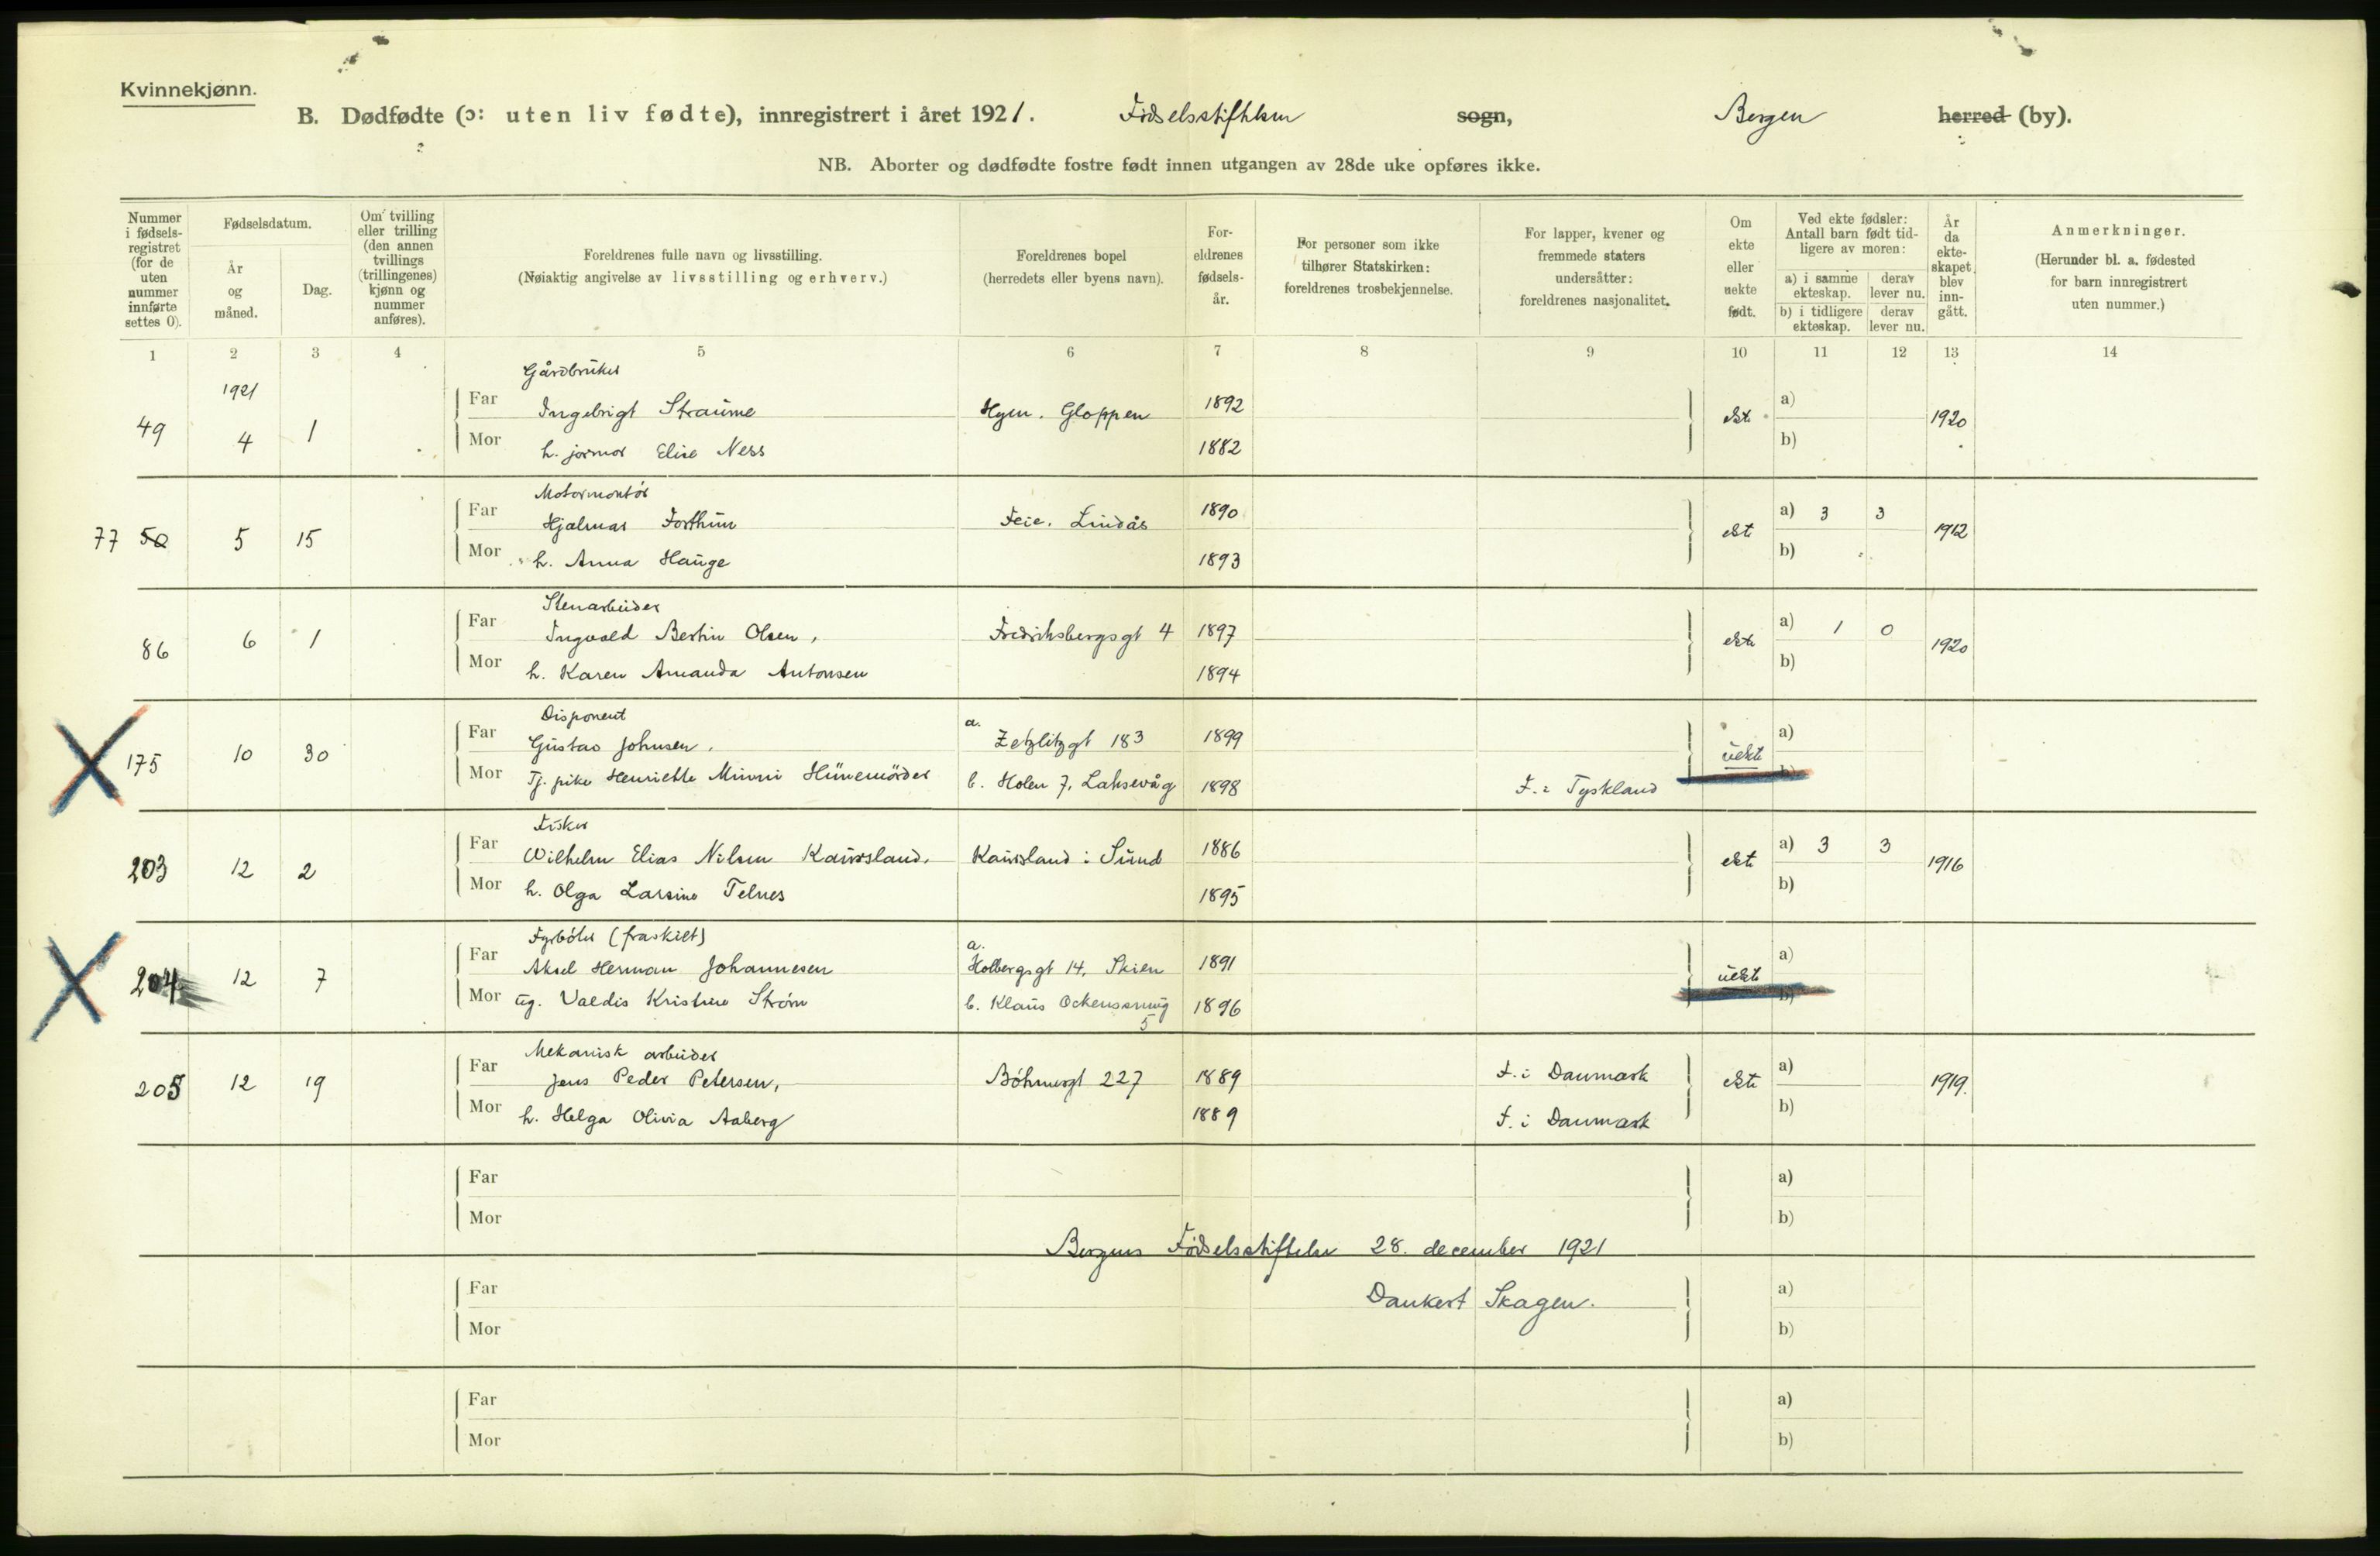 Kvinnekjønn.
B. Dødfødte (ɔ: uten liv fødte), innregistrert i året 1921. Fødselsstiftelsen sogn, Bergen herred (by).
NB. Aborter og dødfødte fostre født innen utgangen av 28de uke opføres ikke.
Nummer i fødsels-registret (for de uten nummer innførte settes 0).
Fødselsdatum.
År og måned.
Dag.
Om tvilling eller trilling (den annen tvillings (trillingenes) kjønn og nummer anføres).
Foreldrenes fulle navn og livsstilling.
(Nøiaktig angivelse av livsstilling og erhverv.)
Foreldrenes bopel
(herredets eller byens navn).
For-eldrenes fødsels-år.
For personer som ikke tilhører Statskirken: foreldrenes trosbekjennelse.
For lapper, kvener og fremmede staters undersåtter: foreldrenes nasjonalitet.
Om ekte eller uekte født.
Ved ekte fødsler: Antall barn født tid-ligere av moren:
a) i samme ekteskap. derav lever nu.
b) i tidligere ekteskap. derav lever nu.
År da ekte-skapet blev inn-gått.
Anmerkninger.
(Herunder bl. a. fødested for barn innregistrert uten nummer.)
1 2 3 4 5 6 7 8 9 10 11 12 13 14
1921
Gårdbruker
49 4 1 Far Ingebrigt Straume Hyen. Gloppen 1892 ekte a) 1920
Mor h. jormor Elise Ness 1882 b)
Motormontör
77 50 5 15 Far Hjalmar Forthun Feie. Lindås 1890 ekt a) 3 3 1912
Mor h. Anna Hauge 1893 b)
Stenarbeider
86 6 1 Far Ingvald Bertin Olsen, Fredriksbergsgt 4 1897 ekte a) 1 0 1920
Mor h. Karen Amanda Antonsen 1894 b)
Disponent
175 10 30 Far Gustav Johnsen. a. Zetzlitzgt 183 1899 uekte a)
Mor Tj. pike Henriette Minni Hünemörder b. Holen 7, Laksevåg 1898 F. i Tyskland b)
Fisker
203 12 2 Far Wilhelm Elias Nilsen Kausland. Kausland i Sund 1886 ekte a) 3 3 1916
Mor h. Olga Larsine Telnes 1895 b)
Fyrböter (fraskilt)
204 12 7 Far Aksel Herman Johannesen a. Holbergsgt 14, Skien 1891 uekte a)
Mor ug. Valdis Kristine Ström b. Klaus Ockenssmug 5 1896 b)
Mekanisk arbeider
205 12 19 Far Jens Peder Petersen, Böhmergt 227 1889 F. i Danmark ekte a) 1919.
Mor h. Helga Olivia Aaberg 1889 F. i Danmark b)
Far a)
Mor b)
Bergens Födselsstiftelse 28. december 1921
Far Dankert Skagen. a)
Mor b)
Far a)
Mor b)